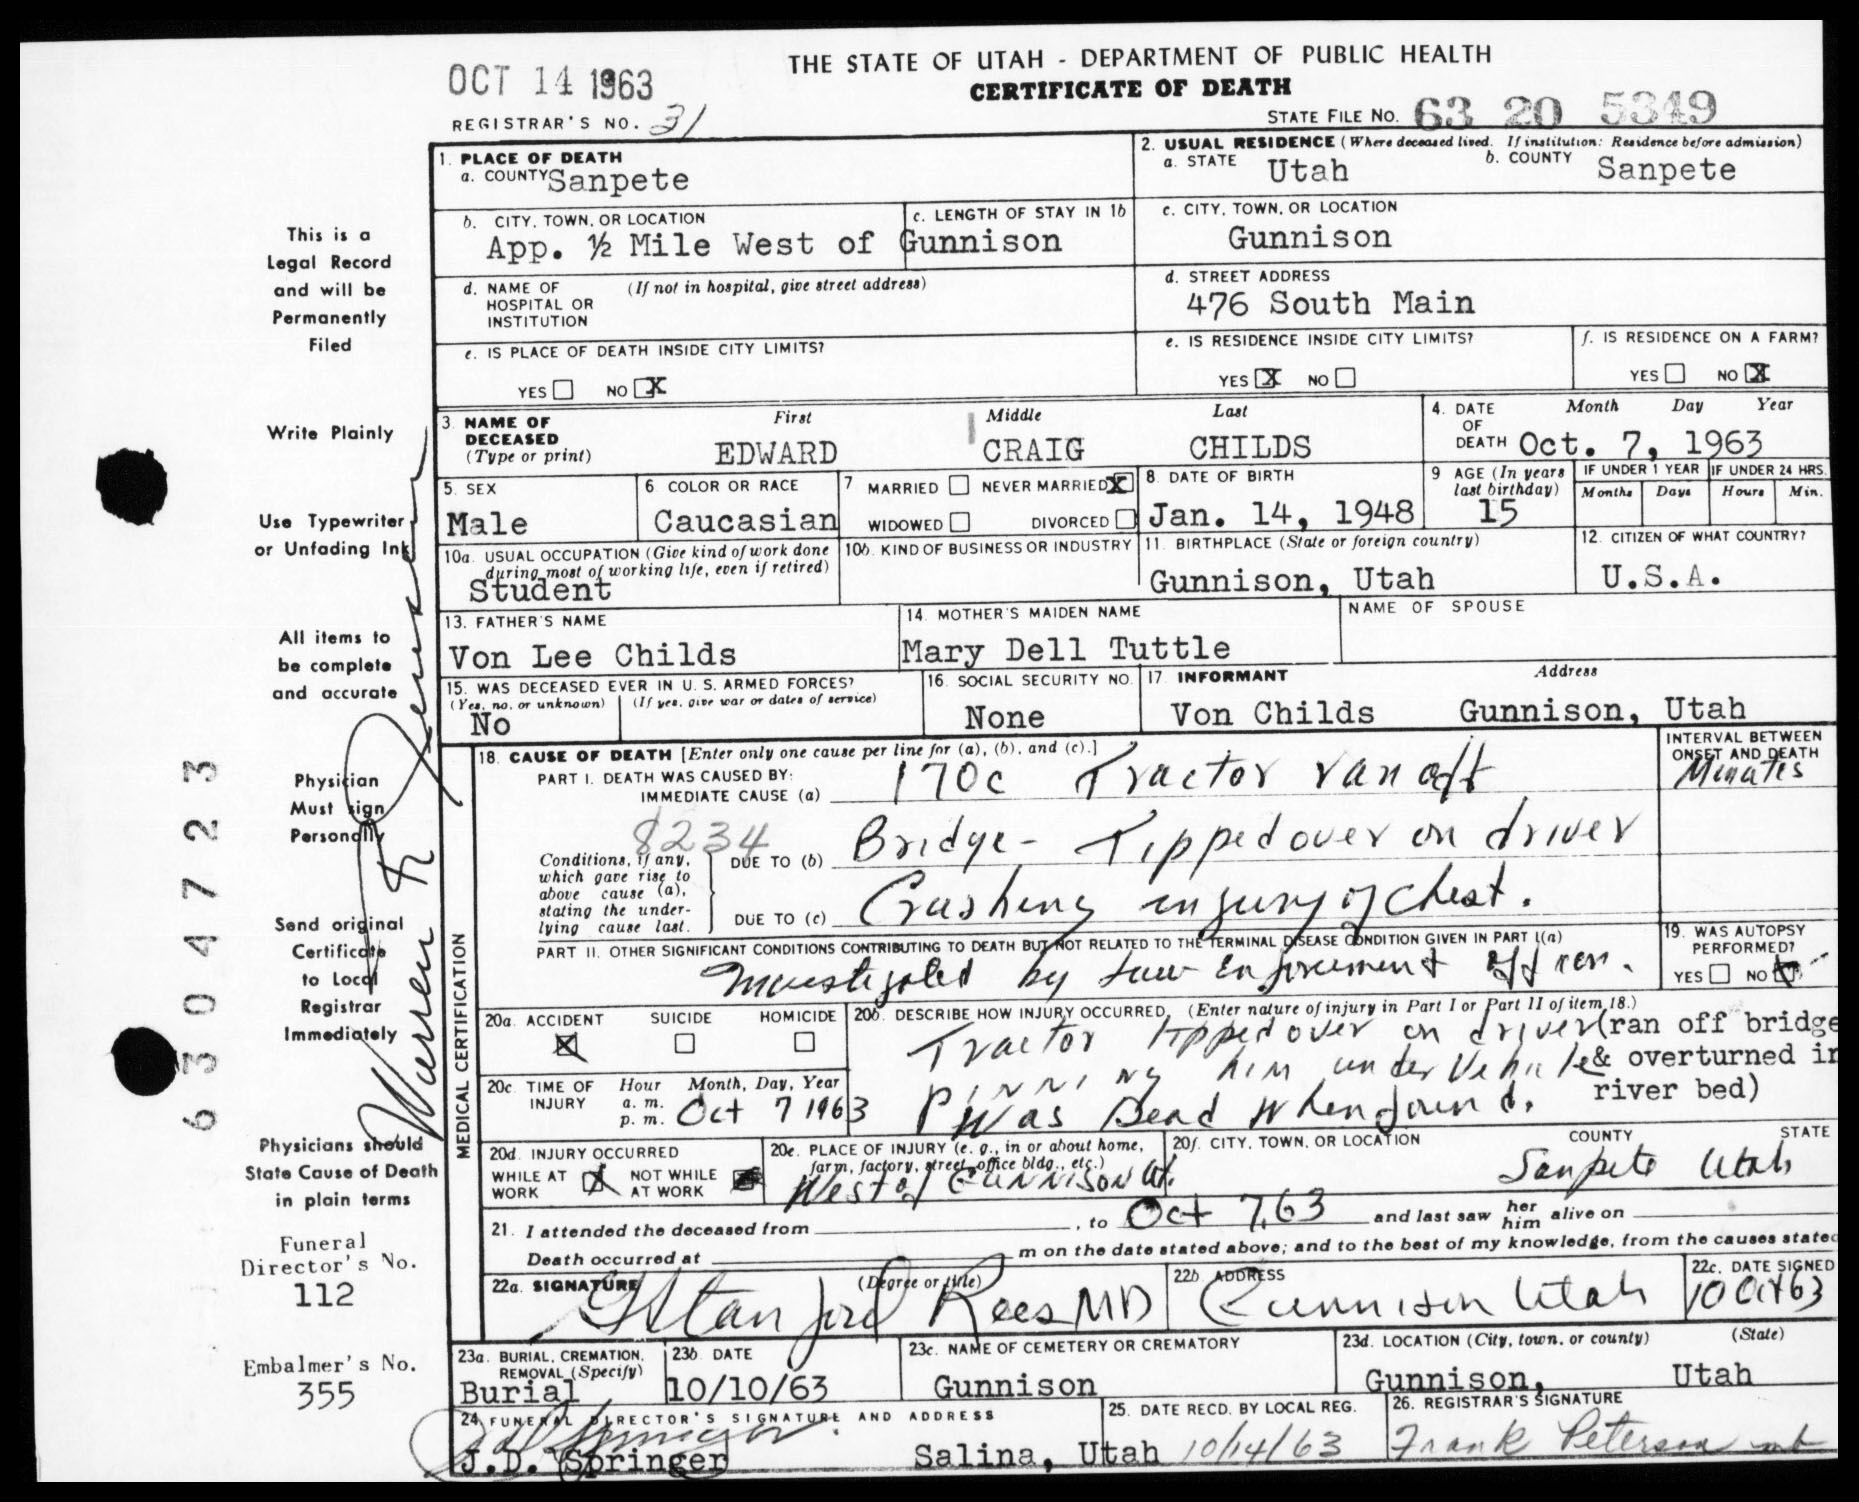 OCT 14 1963
THE STATE OF UTAH - DEPARTMENT OF PUBLIC HEALTH
CERTIFICATE OF DEATH
REGISTRAR'S NO. 31
STATE FILE NO. 63 20 5349
1. PLACE OF DEATH
a. COUNTY Sanpete
2. USUAL RESIDENCE (Where deceased lived. If institution: Residence before admission)
a. STATE Utah b. COUNTY Sanpete
b. CITY, TOWN, OR LOCATION c. LENGTH OF STAY IN 1b
App. ½ Mile West of Gunnison
c. CITY, TOWN, OR LOCATION
Gunnison
d. NAME OF HOSPITAL OR INSTITUTION (If not in hospital, give street address)
d. STREET ADDRESS
476 South Main
e. IS PLACE OF DEATH INSIDE CITY LIMITS?
YES NO X
e. IS RESIDENCE INSIDE CITY LIMITS?
YES X NO
f. IS RESIDENCE ON A FARM?
YES NO X
3. NAME OF DECEASED (Type or print)
First Middle Last
EDWARD CRAIG CHILDS
4. DATE OF DEATH Month Day Year
Oct. 7, 1963
5. SEX
Male
6. COLOR OR RACE
Caucasian
7 MARRIED NEVER MARRIED X
WIDOWED DIVORCED
8. DATE OF BIRTH
Jan. 14, 1948
9 AGE (In years last birthday)
15
IF UNDER 1 YEAR IF UNDER 24 HRS.
Months Days Hours Min.
10a. USUAL OCCUPATION (Give kind of work done during most of working life, even if retired)
Student
10b. KIND OF BUSINESS OR INDUSTRY
11. BIRTHPLACE (State or foreign country)
Gunnison, Utah
12. CITIZEN OF WHAT COUNTRY?
U.S.A.
13. FATHER'S NAME
Von Lee Childs
14. MOTHER'S MAIDEN NAME
Mary Dell Tuttle
NAME OF SPOUSE
15. WAS DECEASED EVER IN U. S. ARMED FORCES?
(Yes, no, or unknown) (If yes, give war or dates of service)
No
16. SOCIAL SECURITY NO.
None
17. INFORMANT Address
Von Childs Gunnison, Utah
MEDICAL CERTIFICATION
18. CAUSE OF DEATH [Enter only one cause per line for (a), (b), and (c).]
INTERVAL BETWEEN ONSET AND DEATH
Minutes
PART I. DEATH WAS CAUSED BY:
IMMEDIATE CAUSE (a) 170c Tractor ran off
8234
Conditions, if any, which gave rise to above cause (a), stating the underlying cause last.
DUE TO (b) Bridge - Tipped over on driver
DUE TO (c) Crushing injury of chest.
PART II. OTHER SIGNIFICANT CONDITIONS CONTRIBUTING TO DEATH BUT NOT RELATED TO THE TERMINAL DISEASE CONDITION GIVEN IN PART I(a)
Investigated by Law Enforcement
19. WAS AUTOPSY PERFORMED?
YES NO X
20a. ACCIDENT X SUICIDE HOMICIDE
20b. DESCRIBE HOW INJURY OCCURRED. (Enter nature of injury in Part I or Part II of item 18.)
Tractor tipped over on driver (ran off bridge
pinning him under Vehicle & overturned in
river bed)
Was Dead when found.
20c. TIME OF INJURY Hour Month, Day, Year
a. m.
p. m. Oct 7 1963
20d. INJURY OCCURRED
WHILE AT WORK X NOT WHILE AT WORK
20e. PLACE OF INJURY (e. g., in or about home, farm, factory, street, office bldg., etc.)
West of GUNNISON Ut.
20f. CITY, TOWN, OR LOCATION COUNTY STATE
Sanpete Utah
21. I attended the deceased from , to Oct 7, 63 and last saw her him alive on
Death occurred at m on the date stated above; and to the best of my knowledge, from the causes stated
22a. SIGNATURE (Degree or title)
Stanford Rees MD
22b. ADDRESS
Gunnison Utah
22c. DATE SIGNED
10 Oct 63
23a. BURIAL, CREMATION, REMOVAL (Specify)
Burial
23b. DATE
10/10/63
23c. NAME OF CEMETERY OR CREMATORY
Gunnison
23d. LOCATION (City, town, or county) (State)
Gunnison, Utah
24. FUNERAL DIRECTOR'S SIGNATURE AND ADDRESS
J.D. Springer Salina, Utah
25. DATE RECD. BY LOCAL REG.
10/14/63
26. REGISTRAR'S SIGNATURE
Frank Peterson
This is a
Legal Record
and will be
Permanently
Filed
Write Plainly
Use Typewriter
or Unfading Ink
All items to
be complete
and accurate
Physician
Must sign
Personally
Send original
Certificate
to Local
Registrar
Immediately
Physicians should
State Cause of Death
in plain terms
Funeral
Director's No.
112
Embalmer's No.
355
6304723
Warren R